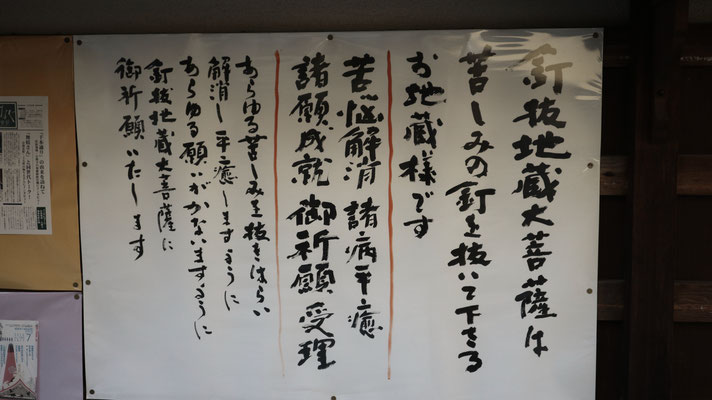 釘抜地蔵大菩薩は
苦しみの釘を抜いて下さる
お地蔵様です
苦悩解消 諸病平癒
諸願成就 御祈願受理
あらゆる苦しみを抜きはらい
解消し平癒しますように
あらゆる願いがかないますように
釘抜地蔵大菩薩に
御祈願いたします